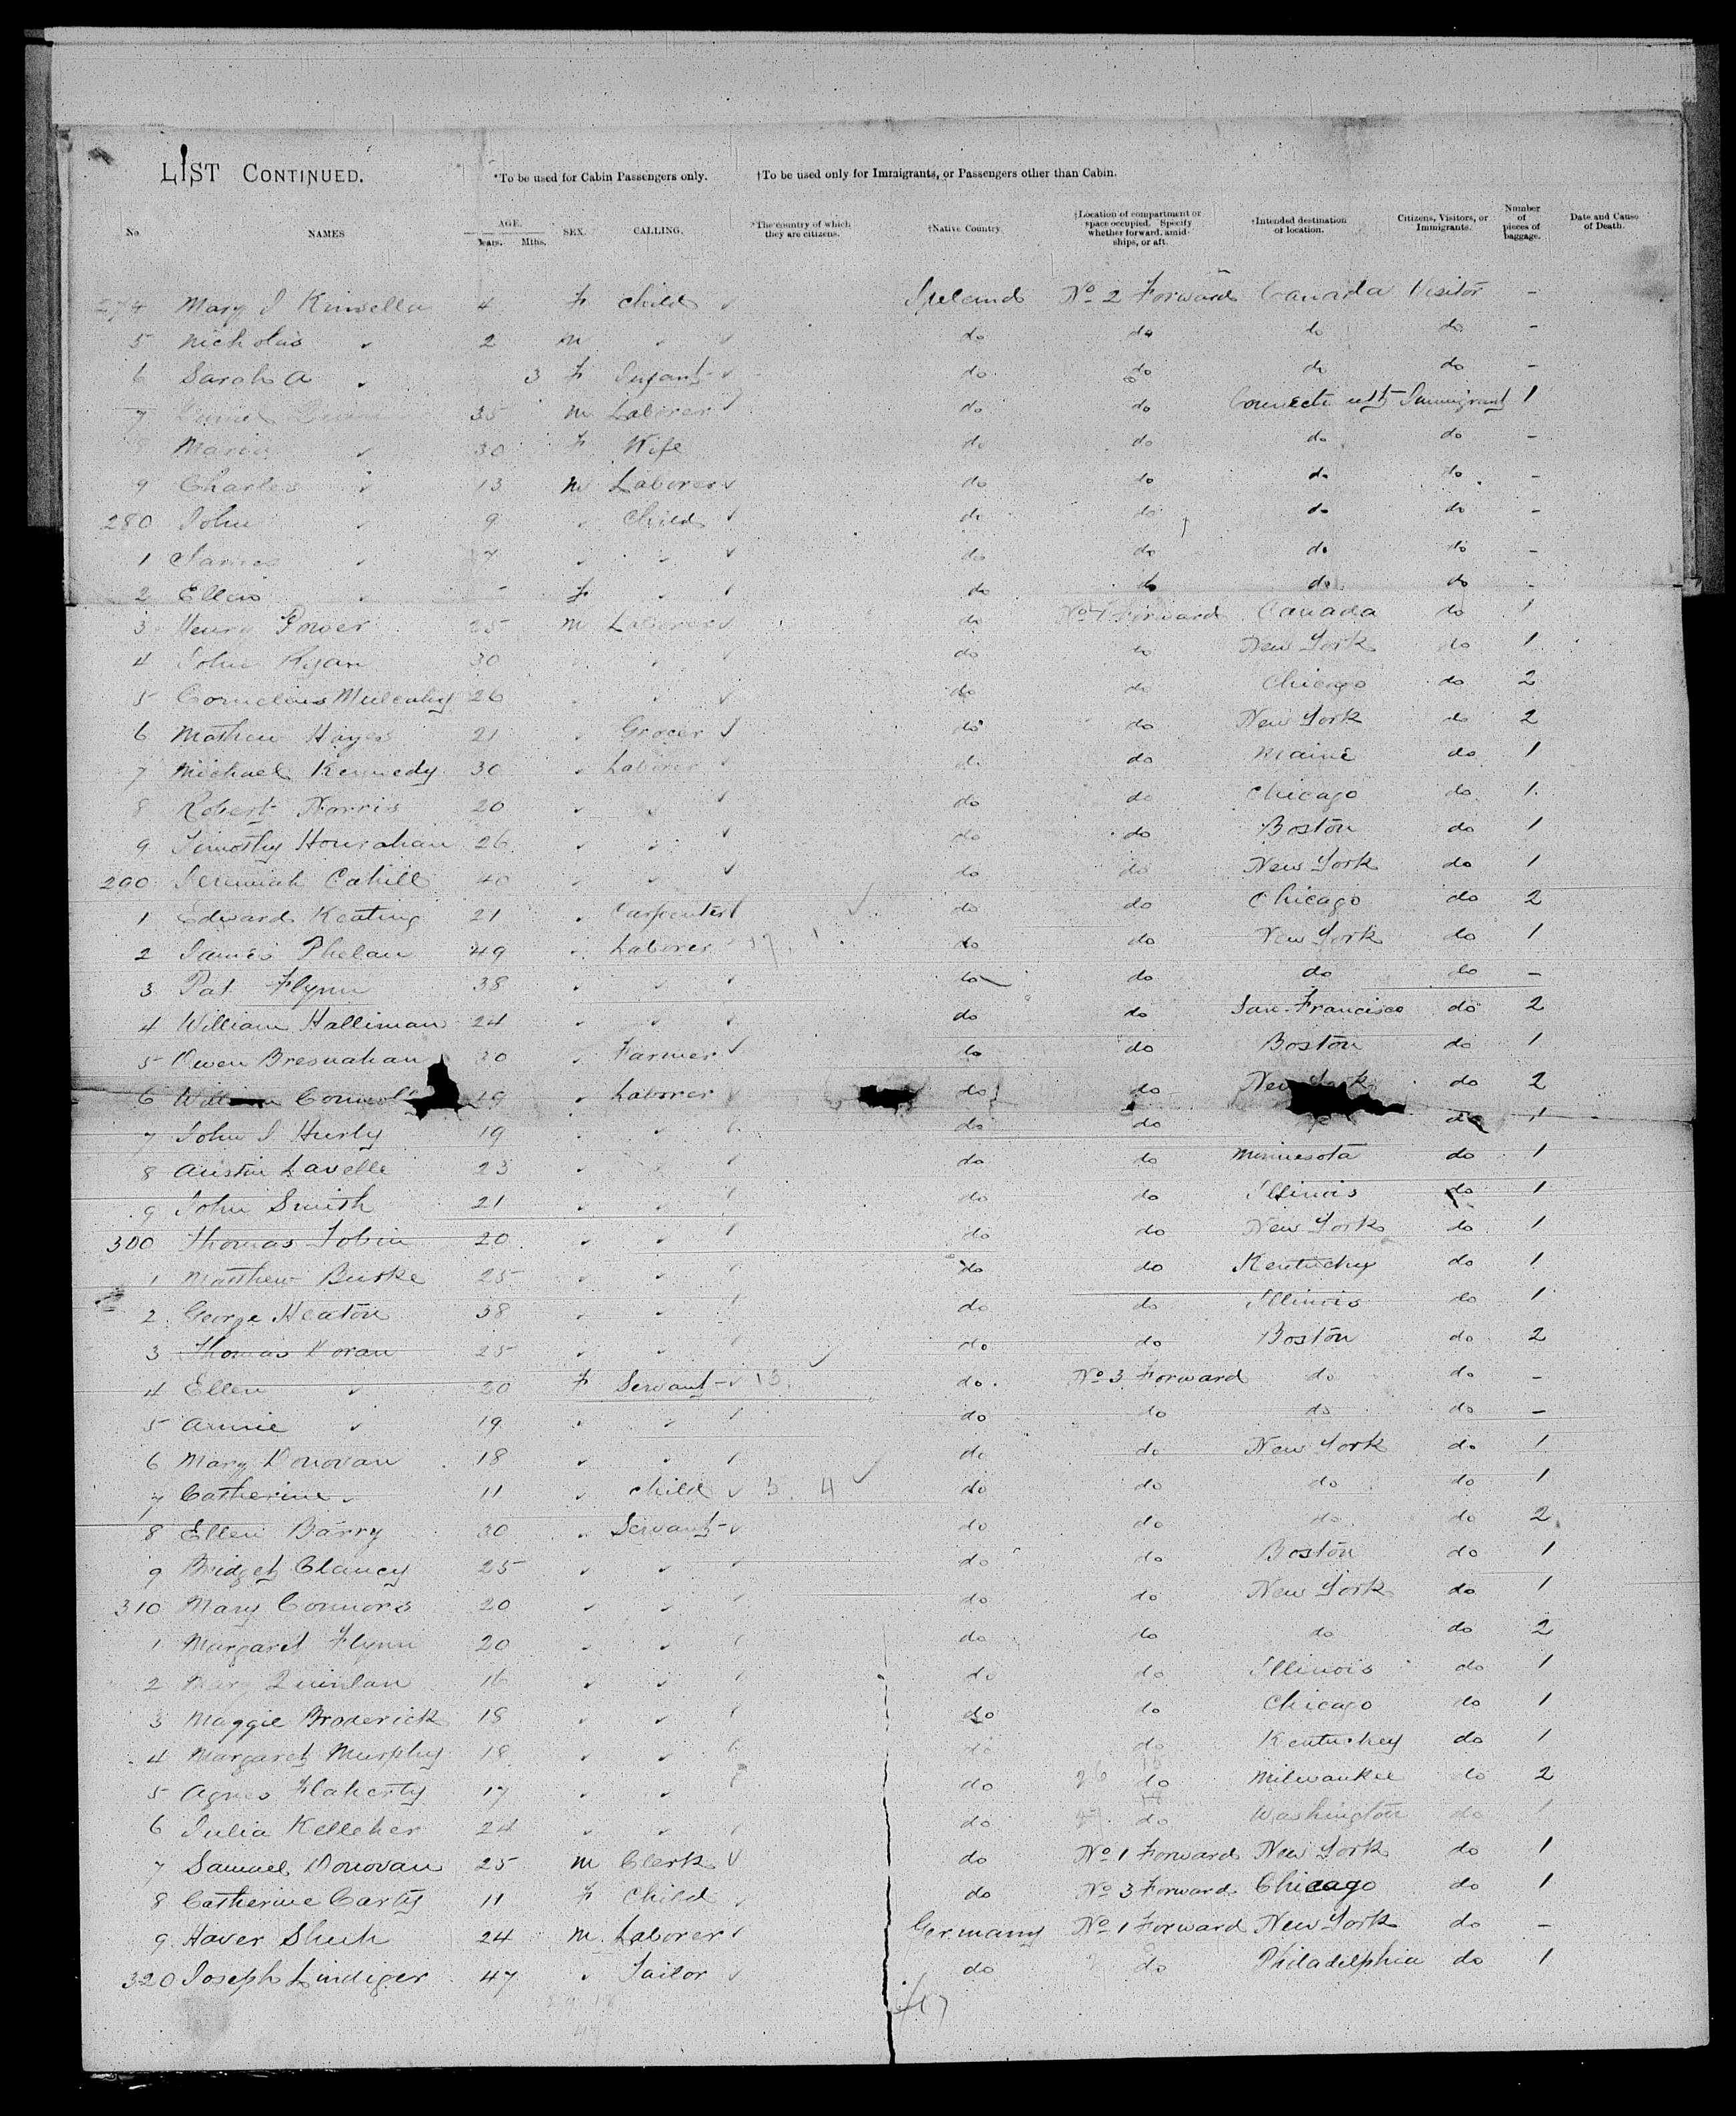 LIST CONTINUED. *To be used for Cabin Passengers only. †To be used only for Immigrants, or Passengers other than Cabin.
No NAMES AGE. Years. Mths. SEX. CALLING. *The country of which they are citizens. †Native Country. †Location of compartment or space occupied. Specify whether forward, amidships, or aft. †Intended destination or location. Citizens, Visitors, or Immigrants. Number of pieces of baggage. Date and Cause of Death.
274 Mary J Kinsella 4 F Child Ireland No 2 Forward Canada Visitor -
5 Nicholas " 2 M " do do do do -
6 Sarah A " 3 F Infant do do do do -
7 35 M Laborer do do Immigrant 1
Maria " 30 F Wife do do do do -
9 Charles " 13 M Laborer do do do do -
280 John " 9 " Child do do do do -
1 James " 7 " " do do do do -
2 Ellen " - F " do do do do -
3 Henry Power 25 M Laborer do No 1 Forward Canada do 1
4 John Ryan 30 " " do do New York do 1
5 Cornelius Mulcahy 26 " " do do Chicago do 2
6 Mathew Hayes 21 " Grocer do do New York do 2
7 Michael Kennedy 30 " Laborer do do Maine do 1
8 Robert Norris 20 " " do do Chicago do 1
9 Timothy Hourahan 26 " " do do Boston do 1
290 Jeremiah Cahill 40 " " do do New York do 1
1 Edward Keating 21 " Carpenter do do Chicago do 2
2 James Phelan 49 " Laborer do do New York do 1
3 Pat Flynn 38 " " do do do do -
4 William Halliman 24 " " do do San Francisco do 2
5 Owen Bresnahan 30 " Farmer do do Boston do 1
6 William 19 " Laborer do do New York do 2
7 John J Hurly 19 " " do do do 1
8 Austin Lavelle 23 " " do do Minnesota do 1
9 John Smith 21 " " do do Illinois do 1
300 Thomas Tobin 20 " " do do New York do 1
1 Matthew Burke 25 " " do do Kentucky do 1
2 George Heaton 38 " " do do Illinois do 1
3 Thomas Doran 25 " " do do Boston do 2
4 Ellen " 20 F Servant do No 3 Forward do do -
5 Annie " 19 " " do do do do -
6 Mary Donovan 18 " " do do New York do 1
7 Catherine " 11 " Child do do do do 1
8 Ellen Barry 30 " Servant do do do do 2
9 Bridget Clancy 25 " " do do Boston do 1
310 Mary Connors 20 " " do do New York do 1
1 Margaret Flynn 20 " " do do do do 2
2 Mary Quinlan 16 " " do do Illinois do 1
3 Maggie Broderick 18 " " do do Chicago do 1
4 Margaret Murphy 18 " " do do Kentuckey do 1
5 Agnes Flaherty 17 " " do do Milwaukee do 2
6 Julia Kelleher 24 " " do do Washington do 1
7 Samuel Donovan 25 M Clerk do No 1 Forward New York do 1
8 Catherine Carty 11 F Child do No 3 Forward Chicago do 1
9 Haver 24 M Laborer Germany No 1 Forward New York do -
320 Joseph Lindiger 47 " Tailor do do Philadelphia do 1